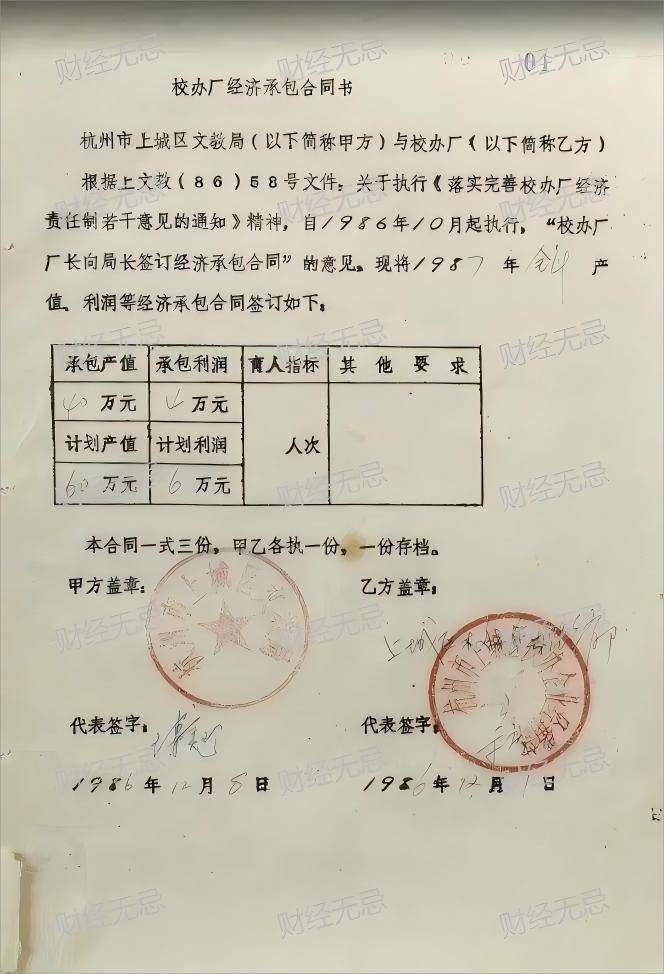 01
校办厂经济承包合同书
杭州市上城区文教局(以下简称甲方)与校办厂(以下简称乙方)
根据上文教(86)58号文件:关于执行《落实完善校办厂经济
责任制若干意见的通知》精神,自1986年10月起执行,“校办厂
厂长向局长签订经济承包合同”的意见。现将1987年全年产
值、利润等经济承包合同签订如下:
承包产值 承包利润 育人指标 其他要求
40万元 4万元
计划产值 计划利润 人次
60万元 6万元
本合同一式三份,甲乙各执一份,一份存档。
甲方盖章: 乙方盖章:
杭州市上城区文教局
上城区
杭州市上城区
代表签字: 代表签字:
1986年12月8日 1986年12月1日
财经无忌